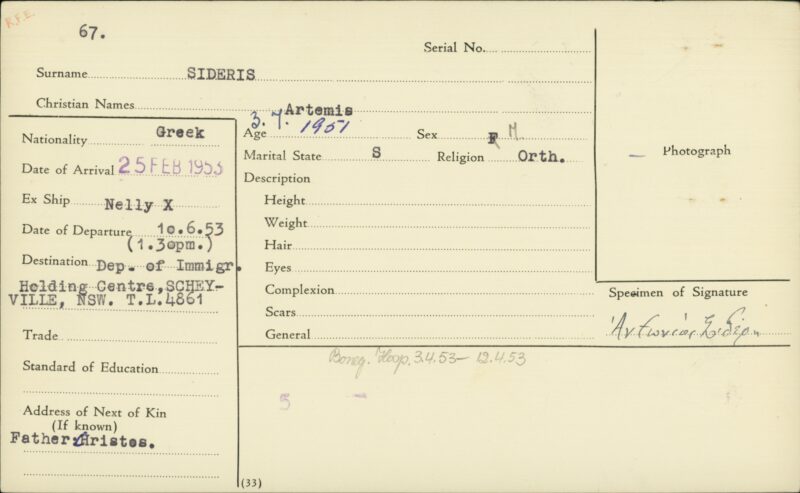 R.F.E.
67.
Serial No.
Surname SIDERIS
Christian Names Artemis
Nationality Greek
Date of Arrival 25 FEB 1953
Ex Ship Nelly X
Date of Departure 10.6.53
(1.30pm.)
Destination Dep. of Immigr.
Holding Centre, SCHEY-
VILLE, NSW. T.L.4861
Trade
Standard of Education
Address of Next of Kin
(If known)
Father: Hristos.
3.7.
Age 1951 Sex F M
Marital State S Religion Orth.
Description
Height
Weight
Hair
Eyes
Complexion
Scars
General
Photograph
Specimen of Signature
Boneg. Hosp. 3.4.53 – 12.4.53
5
(33)